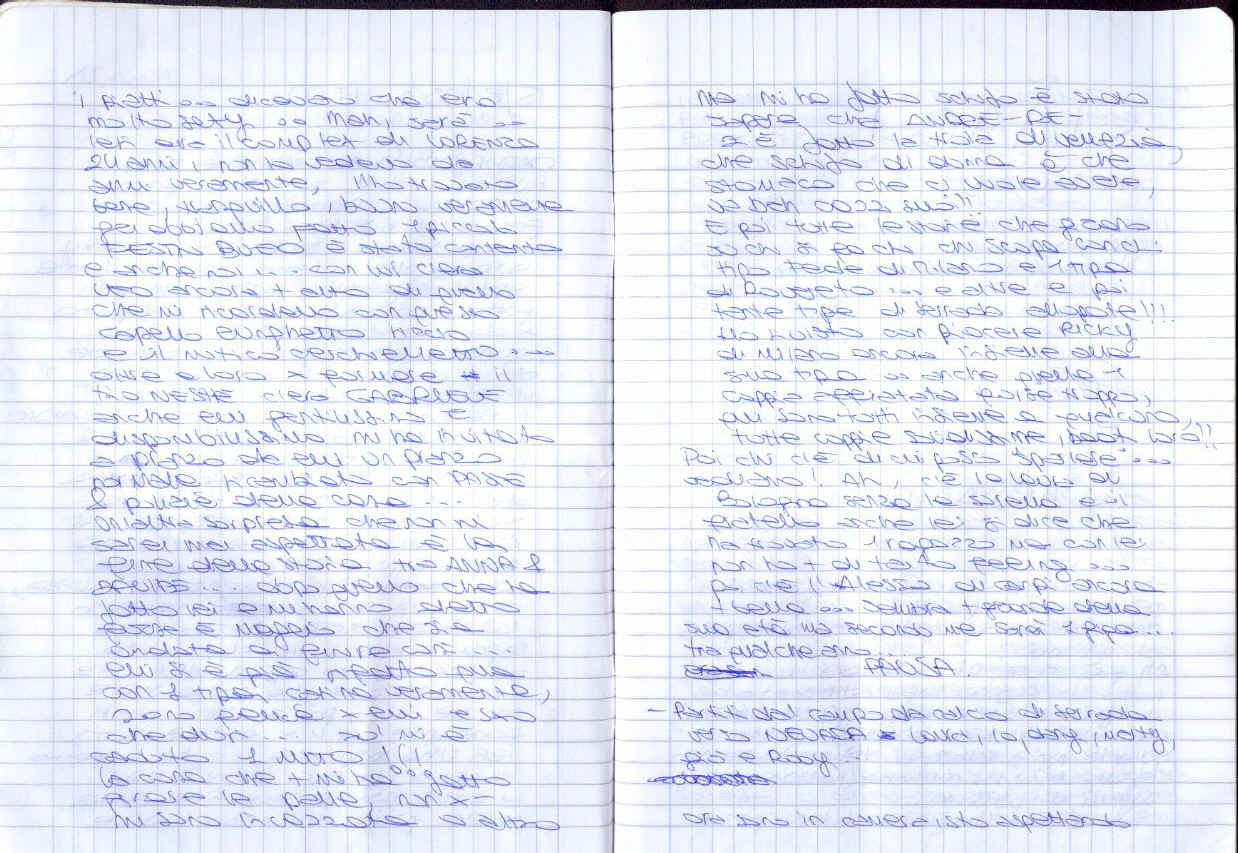 i piatti ... dicevano che ero
molto sexy ... mah, sarà ...
ieri era il complex di LORENZO
24 anni, non lo vedevo da
anni veramente, l'ho trovato
bene, tranquillo, buono veramente
poi abbiamo fatto 1 piccola
FESTA è stato contento
e anche noi ... con lui c'era
UGO ancora + alto di quello
che mi ricordavo con questo
capello lunghetto riccio
e il mitico cerchielletto ...
oltre a loro x formare il
trio c'era GABRIELE
anche lui gentilissimo E
disponibilissimo mi ha invitato
a pranzo da lui un pranzo
normale ricambiato con
& pulizie della casa ...
un'altra sorpresa che non mi
sarei mai aspettata è la
fine della storia tra ANNA &
... dopo quello che ha
fatto lei e mi hanno detto
è meglio che sia
andata a finire così ...
lui si è già
con 1 tipa carina veramente,
sono felice x lui e
che dirti ... mi è
caduto 1 MITO !!!
la cosa che + mi ha fatto
girare le palle, non x
mi sono incazzata o altro
ma mi ha fatto schifo è stato
sapere che ANDRE-RE-
si è fatto la troia di Venezia,
che schifo di donna è che
stomaco che ci vuole avere,
va beh cazzi suoi!!
E poi tutte le storie che girano
su chi si fa chi chi scopa con chi
tipo Fede di Milano e 1 tipa
di Rovereto ... e altre e poi
tante tipe di Serrada !!!
Ho rivisto con piacere RICKY
di Milano ancora insieme alla
sua tipa ... anche quella 1
coppia affiatata forse troppo,
qui sono tutti insieme a qualcuno,
tutte coppie loro!!
Poi chi c'è di cui posso "sparlare" ...
vediamo! Ah, c'è la Laura di
Bologna senza la sorella e il
fratello anche lei si dice che
ha trovato 1 ragazzo ma con lei
non ho + di tanto feeling ...
poi c'è l'Alessia di Carpi ancora
+ bella ... sembra + grande della
sua età ma secondo me sarà 1 figa ...
tra qualche anno ...
PAUSA.
- Partiti dal campo da calcio di Serrada
verso Luca, la Dany, Marty,
Giò e Roby ...
ora sono in camera isto aspettando